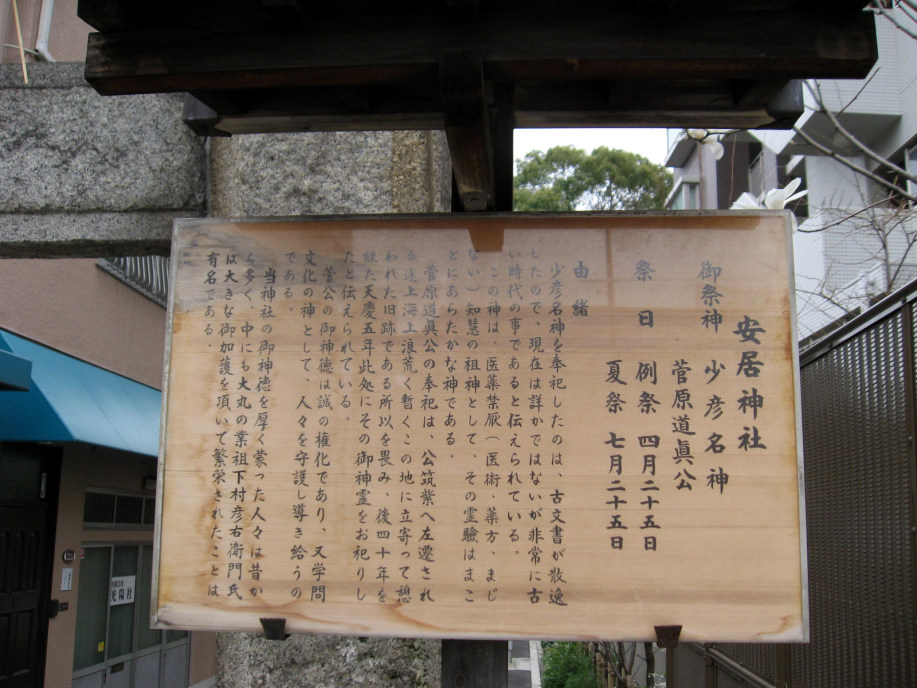 安居神社
御祭神　少彦名神
菅原道眞公
祭日　例祭　四月二十五日
夏祭　七月二十五日
由緒
少彦名神を奉祀したのは、古文書が散逸
したので、現在は詳かではないが非常に古
い時代の事であると伝えられている。
この神は、医薬禁厭（医術、薬方、まじ
ない）知慧の祖神として、その霊験はまこ
とにあらたかな神である。
菅原道眞公の奉祀は、公筑紫へ左遷され
る途上海上浪荒く暫くこの地に立寄って憩
われた旧跡である所以を畏み、後四十年を
経た天慶五年此処にその御神霊をお祀りし
たと伝えられている。
菅公の御神徳は誠の権化であり、又学問
文化の神として、人々を守護し導き給うの
である。
当神社の御神徳を厚く蒙った人々は昔か
ら多く、中にも大丸の業祖下村彦右衛門氏
は大きな御加護を頂いて繁栄されたことは
有名である。
光陽社